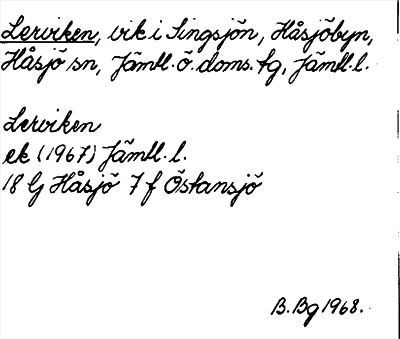 Lerviken, vik i Singsjön, Håsjöbyn,
Håsjö sn, Jämtl. ö. doms. tg, Jämtl. l.
Lerviken
ek (1967) Jämtl. l.
18 G Håsjö 7 f Östansjö
B. Bg 1968.